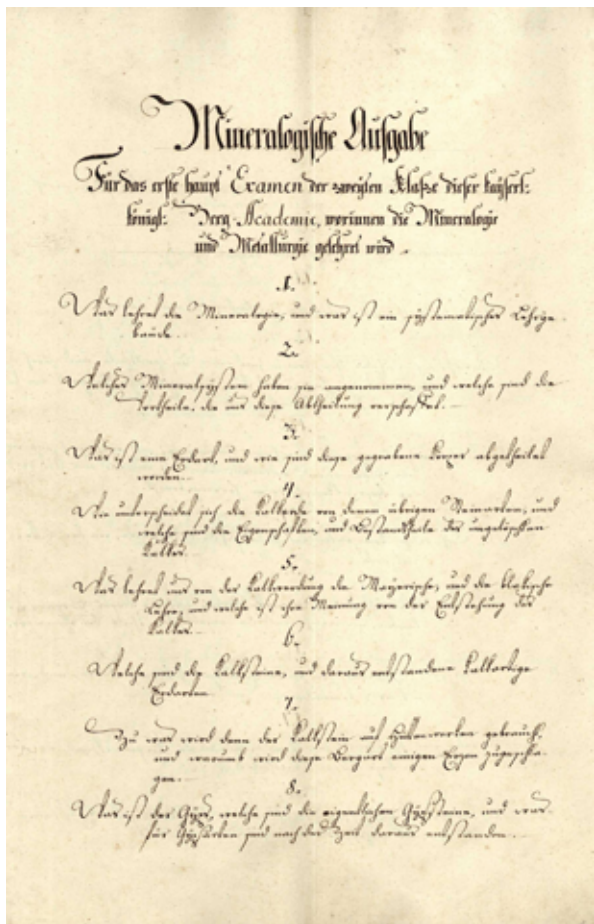 Mineralogische Aufgabe
Für das erste haupt Examen der zweyten Klaße dieser kayserl:
königl: Berg-Academie, worinnen die Mineralogie
und Metallurgie gelehret wird.
1.
Was lehret die Mineralogie, und was ist ein systematisches Lehrge
bäude.
2.
Welches Mineralsystem haben sie angenommen, und welche sind die
Vortheile, die uns diese Abtheilung verschaffet.
3.
Was ist eine Erdart, und wie sind diese gegrabene Körper abgetheilet
worden.
4.
Wie unterscheidet sich die Kalkerde von denen übrigen Steinarten, und
welche sind die Eigenschaften, und Bestandtheile des ungelöschten
Kalkes.
5.
Was lehret uns von der Kalkwerdung die Mayerische, und die blakische
Lehre, und welche ist ihre Meinung von der Entstehung des
Kalkes.
6.
Welche sind die Kalksteine, und daraus entstandene Kalkartige
Erdarten.
7.
Zu was wird denn der Kalkstein auf Hüttenwerken gebraucht,
und warumb wird diese Bergart einigen Erzen zugeschla-
gen.
8.
Was ist der Gyps, welche sind die eigentlichen Gypssteine, und was
für Gypsarten sind nach der Zeit daraus entstanden.